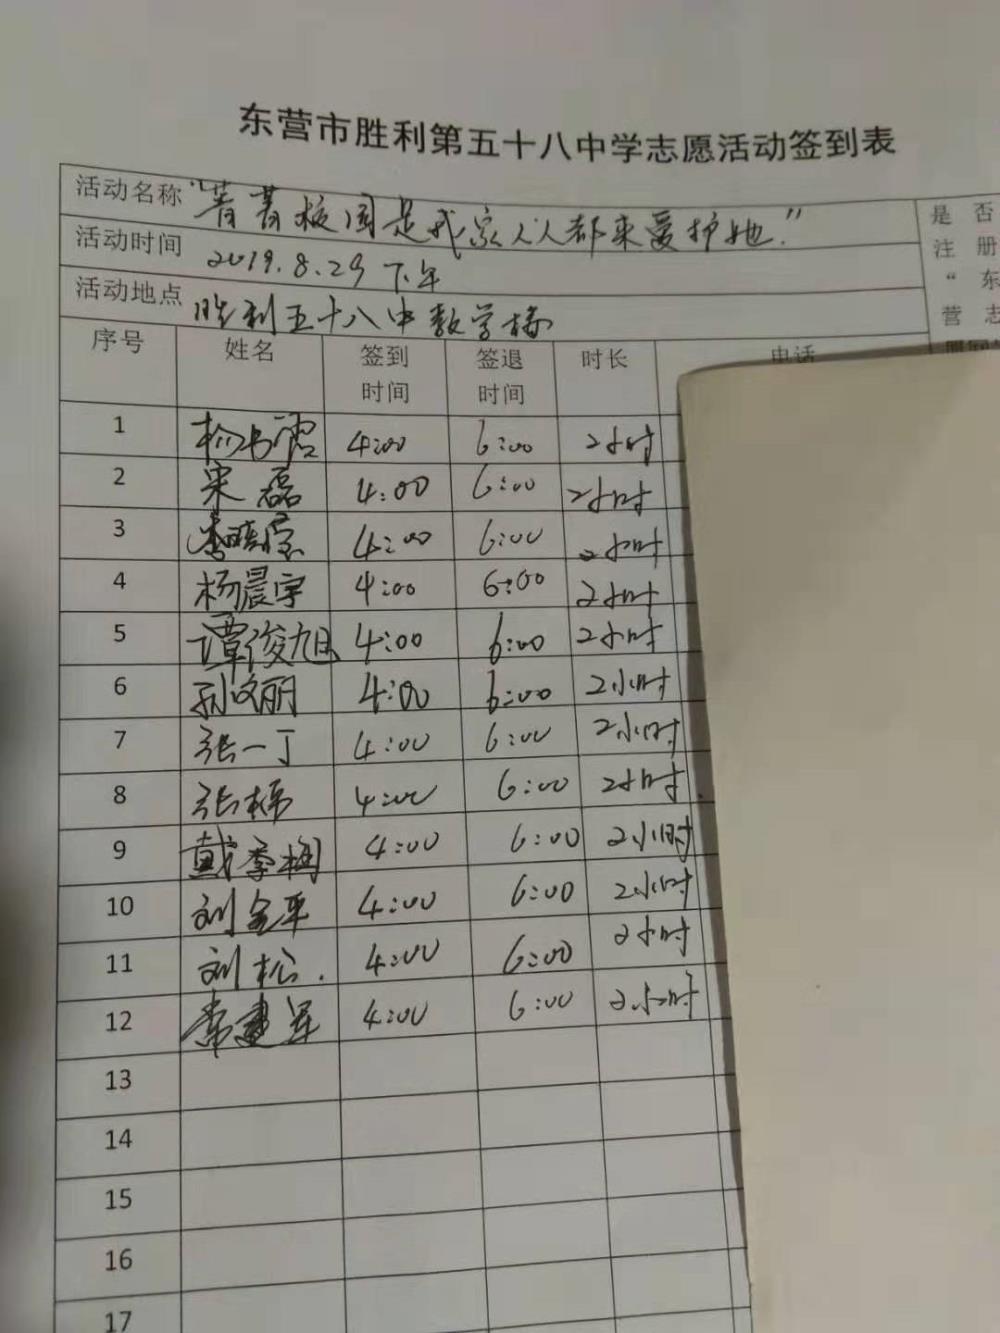 东营市胜利第五十八中学志愿活动签到表
活动名称 “菁菁校园是我家人人都来爱护她.”
活动时间 2019.8.29 下午
活动地点 胜利五十八中教学楼
是否
注册
“东
营志
序号 姓名 签到时间 签退时间 时长 电话
1 杨书 4:00 6:00 2小时
2 宋磊 4:00 6:00 2小时
3 李 4:00 6:00 2小时
4 杨晨宇 4:00 6:00 2小时
5 谭俊旭 4:00 6:00 2小时
6 孙文丽 4:00 6:00 2小时
7 张一丁 4:00 6:00 2小时
8 张 4:00 6:00 2小时
9 戴季梅 4:00 6:00 2小时
10 刘金平 4:00 6:00 2小时
11 刘松. 4:00 6:00 2小时
12 常建军 4:00 6:00 2小时
13
14
15
16
17